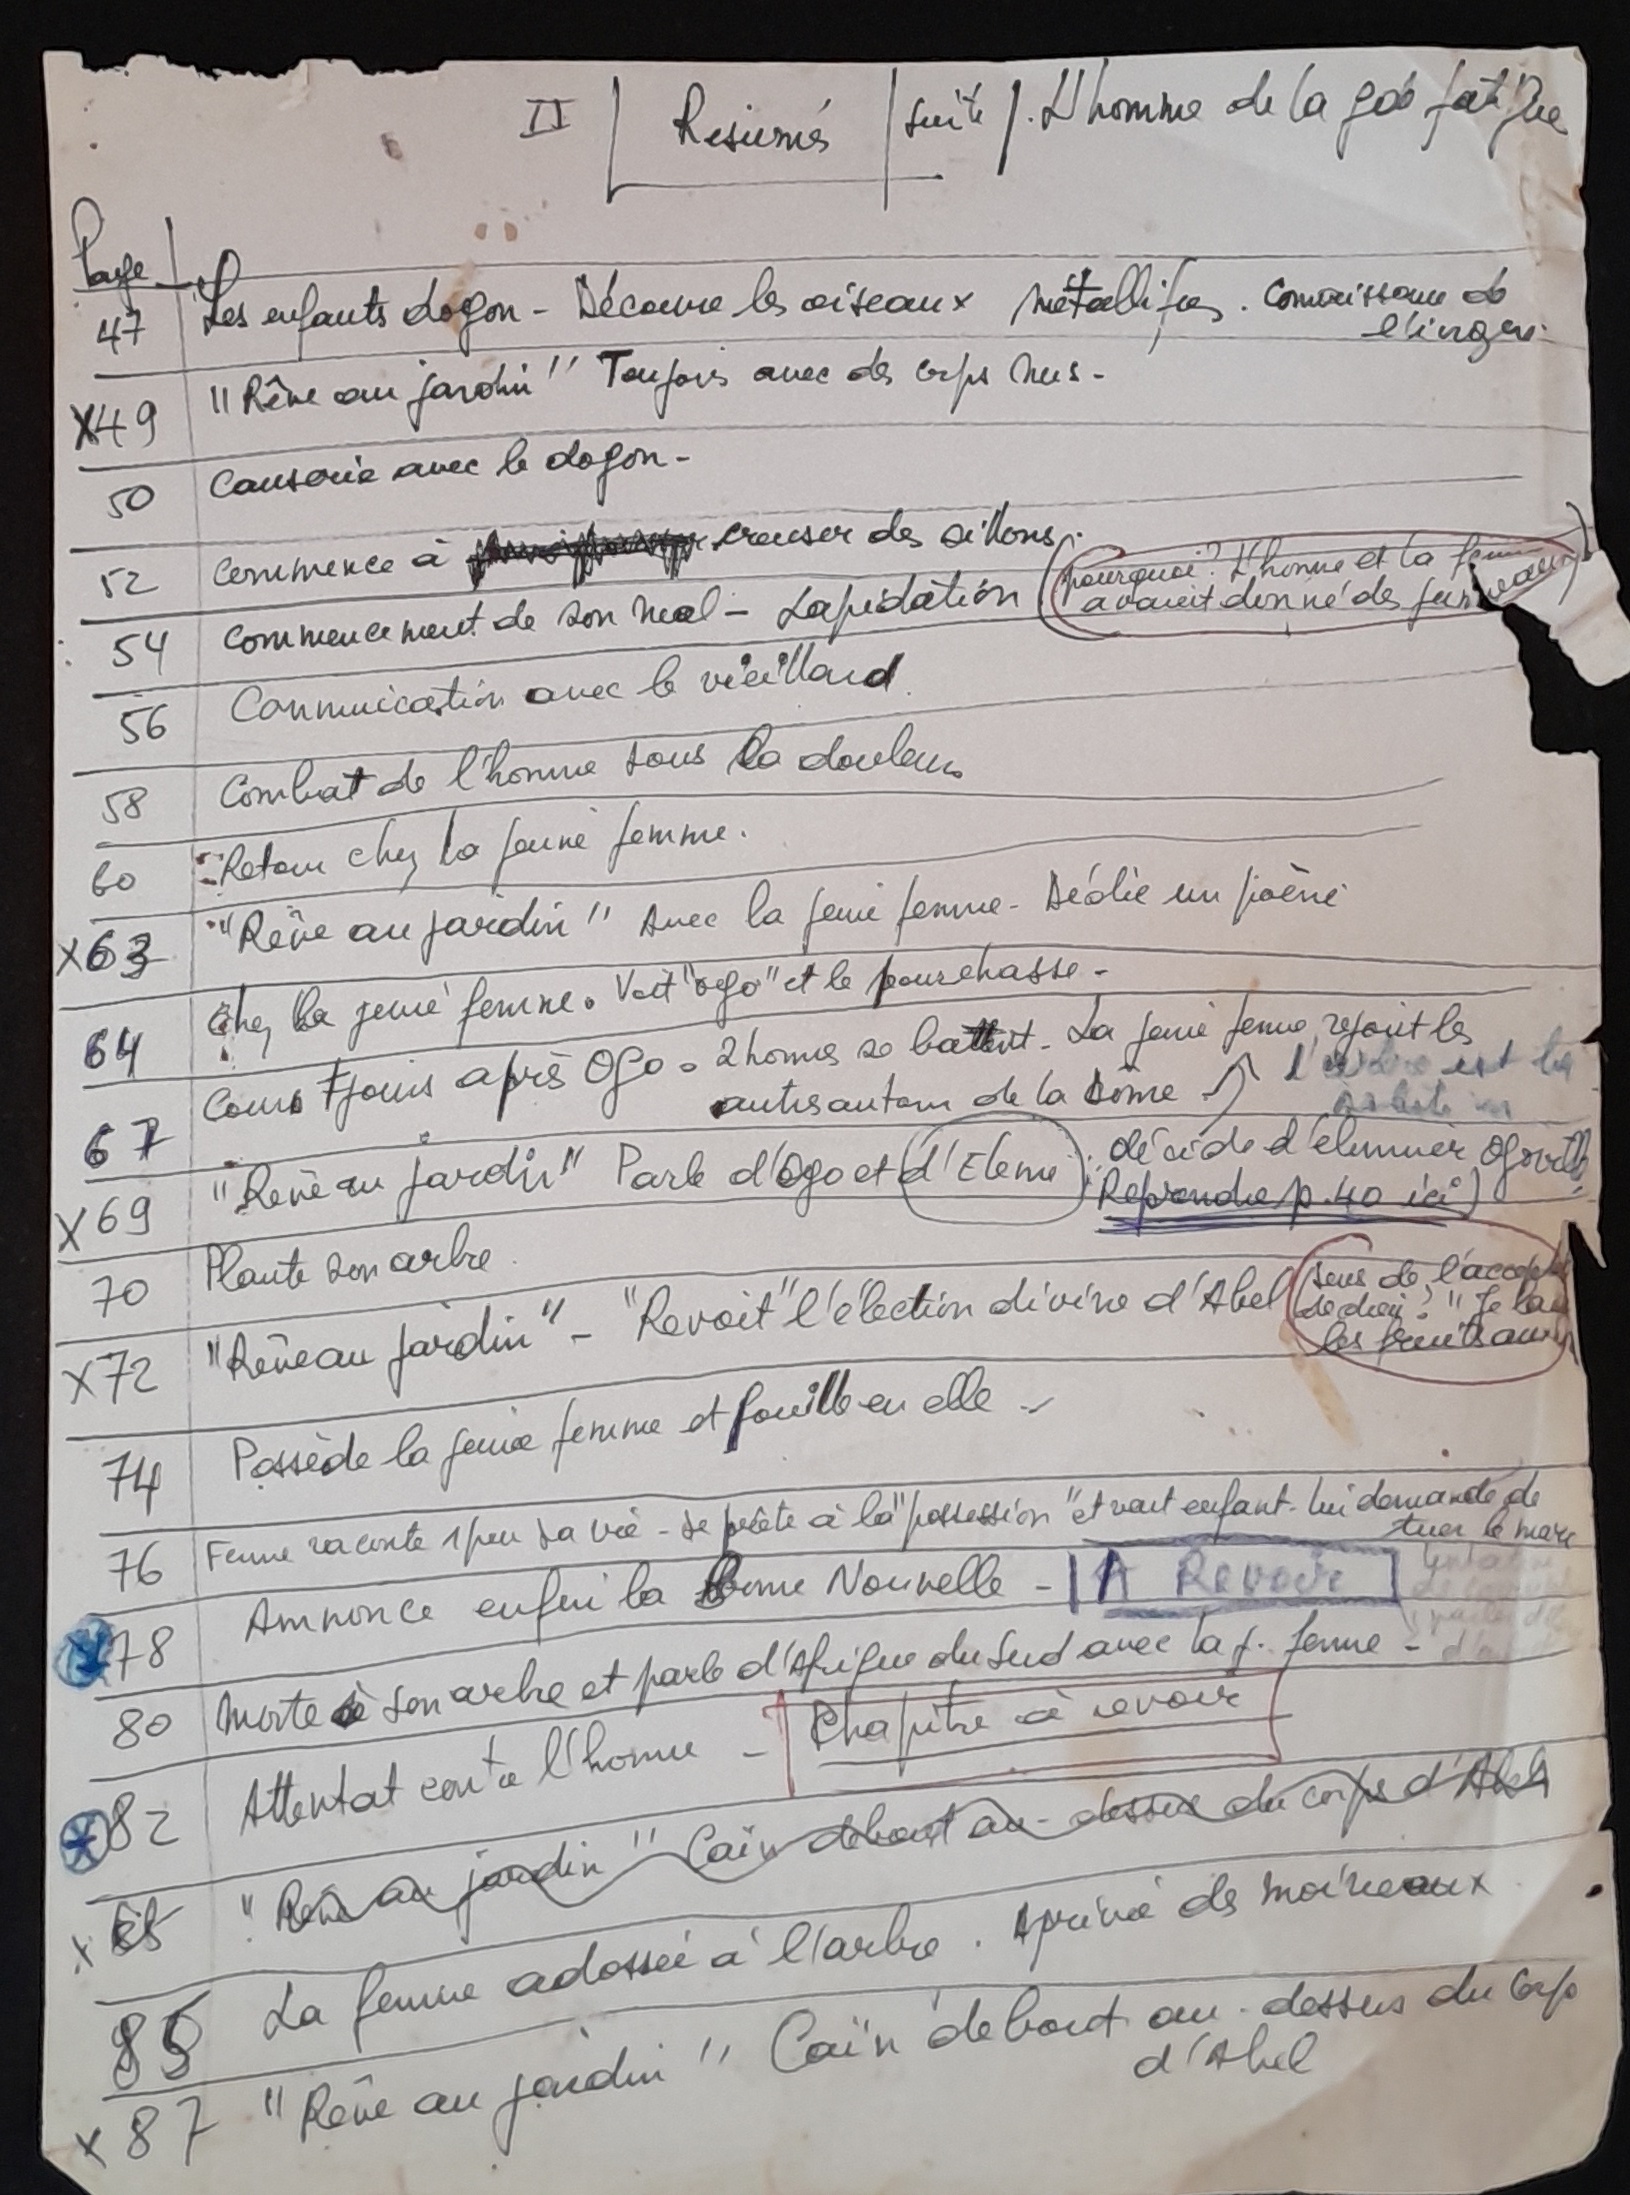 II | Résumés | suite /. L'homme de la
Page
47 Les enfants dogon - Découvre les oiseaux métalliques. Connaissance de
X49 "Rêve au jardin" Toujours avec des corps nus -
50 Causerie avec le dogon -
52 Commence à creuser des sillons.
54 Commencement de son mal - Lapidation (pourquoi? L'homme et la femme
avaient donné des jumeaux)
56 Communication avec le vieillard.
58 Combat de l'homme sous la douleur
60 Retour chez la jeune femme.
X63 "Rêve au jardin" Avec la jeune femme - Dédie un poème
64 Chez la jeune femme. Voit "ogo" et le pourchasse -
67 Cours 7 jours après Ogo. 2 hommes se battent - La jeune femme rejoint les
autres autour de la Dôme
X69 "Rêve au jardin" Parle d'Ogo et d'Eleme ; décide d'éliminer
(Reprendre p. 40 ici)
70 Plante son arbre.
X72 "Rêve au jardin" - "Revoit" l'élection divine d'Abel (sens de
"Je
les fruits
74 Possède la jeune femme et fouille en elle -
76 Femme raconte 1 peu sa vie - se prête à la "possession" et veut enfant - lui demande de
tuer le mari
X78 Annonce enfin la Bonne Nouvelle - A Revoir
80 Monte à son arbre et parle d'Afrique du Sud avec la j. femme -
X82 Attentat contre l'homme - Chapitre à revoir
X85 "Rêve au jardin" Caïn debout au-dessus du corps d'Abel
85 La femme adossée à l'arbre. Aprivoie des moineaux
X87 "Rêve au jardin" Caïn debout au-dessus du corps
d'Abel